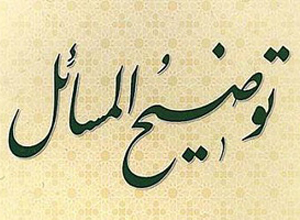 توضیح المسائل